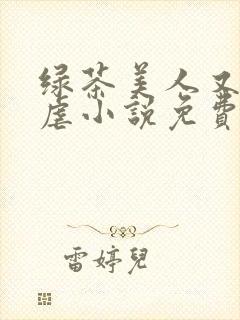 绿茶美人又
虐小説免費
雷婷兒